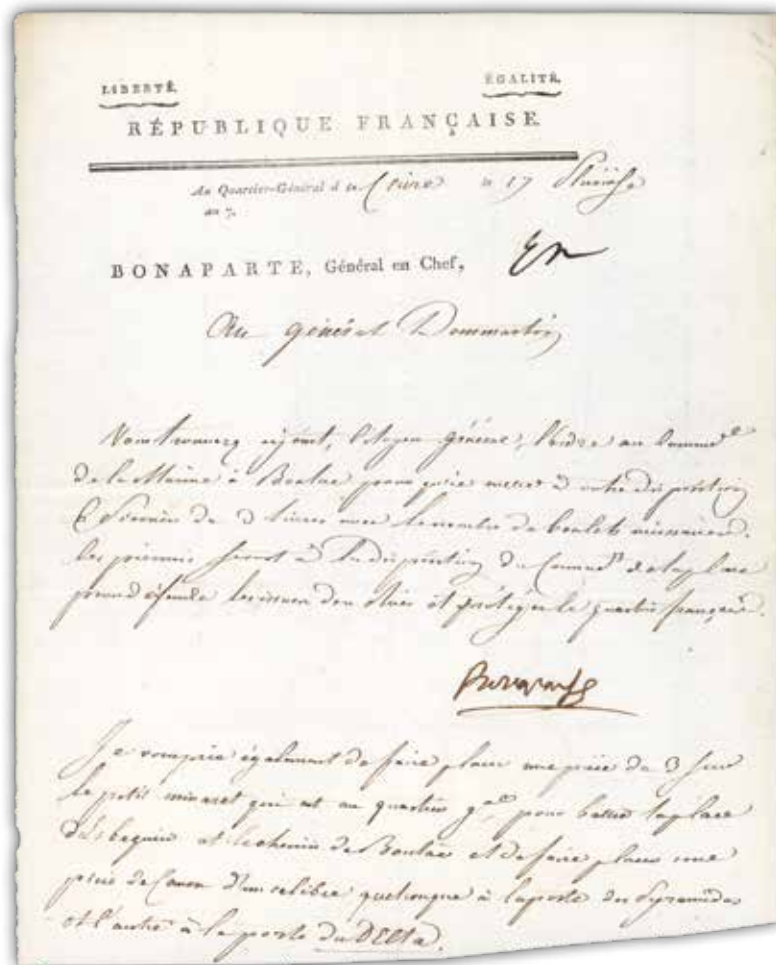 LIBERTÉ. ÉGALITÉ.
RÉPUBLIQUE FRANÇAISE.
Au Quartier-Général d u Caire le 17 Pluviôse
an 7.
BONAPARTE, Général en Chef,
Au général Dommartin
Vous trouverez cijoint, Citoyen général, l'ordre au Command.
de la Marine à Boulac pour qu'il mette à votre disposition
6 de 3 livres avec le nombre de boulets nécessaires.
Les seront à la disposition du Comm. de la place
les issues et protéger le quartier français.
Bonaparte
Je vous prie également de faire placer une pièce de 3 sur
le petit minaret qui est au quartier g.al pour battre la place
Esbequier et le chemin de Boulac et de faire placer une
pièce de Canon d'un calibre quelconque à la porte des Pyramides
et l'autre à la porte du Delta.